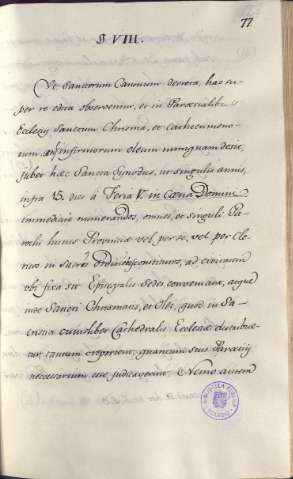 77
§. VIII.
Ut Sanctorum Canonum decreta, hac su-
per re edita observentur, et in Parœcialibus
Ecclesiis Sanctum Chrisma, et Cathecumeno-
rum, infirmorum oleum nunquam desit,
jubet hæc Sancta Synodus, ut singulis annis,
infra 15. dies á Feria V. in Cœna Domini
immediate numerandos, omnes, et singuli Pa-
rochi hujus Provinciæ vel per se, vel per Cle-
ricos in sacris constitutos, ad civitatem
ubi fixa est Episcopalis Sedes conveniant, atque
inde Sancti Chrismatis, et Olei, quod in Sa-
cristia cujuslibet Cathedralis Ecclesiæ distribue-
tur, tantum exportent, quantum suis Parœciis
necessarium esse judicaverint. Nemo autem